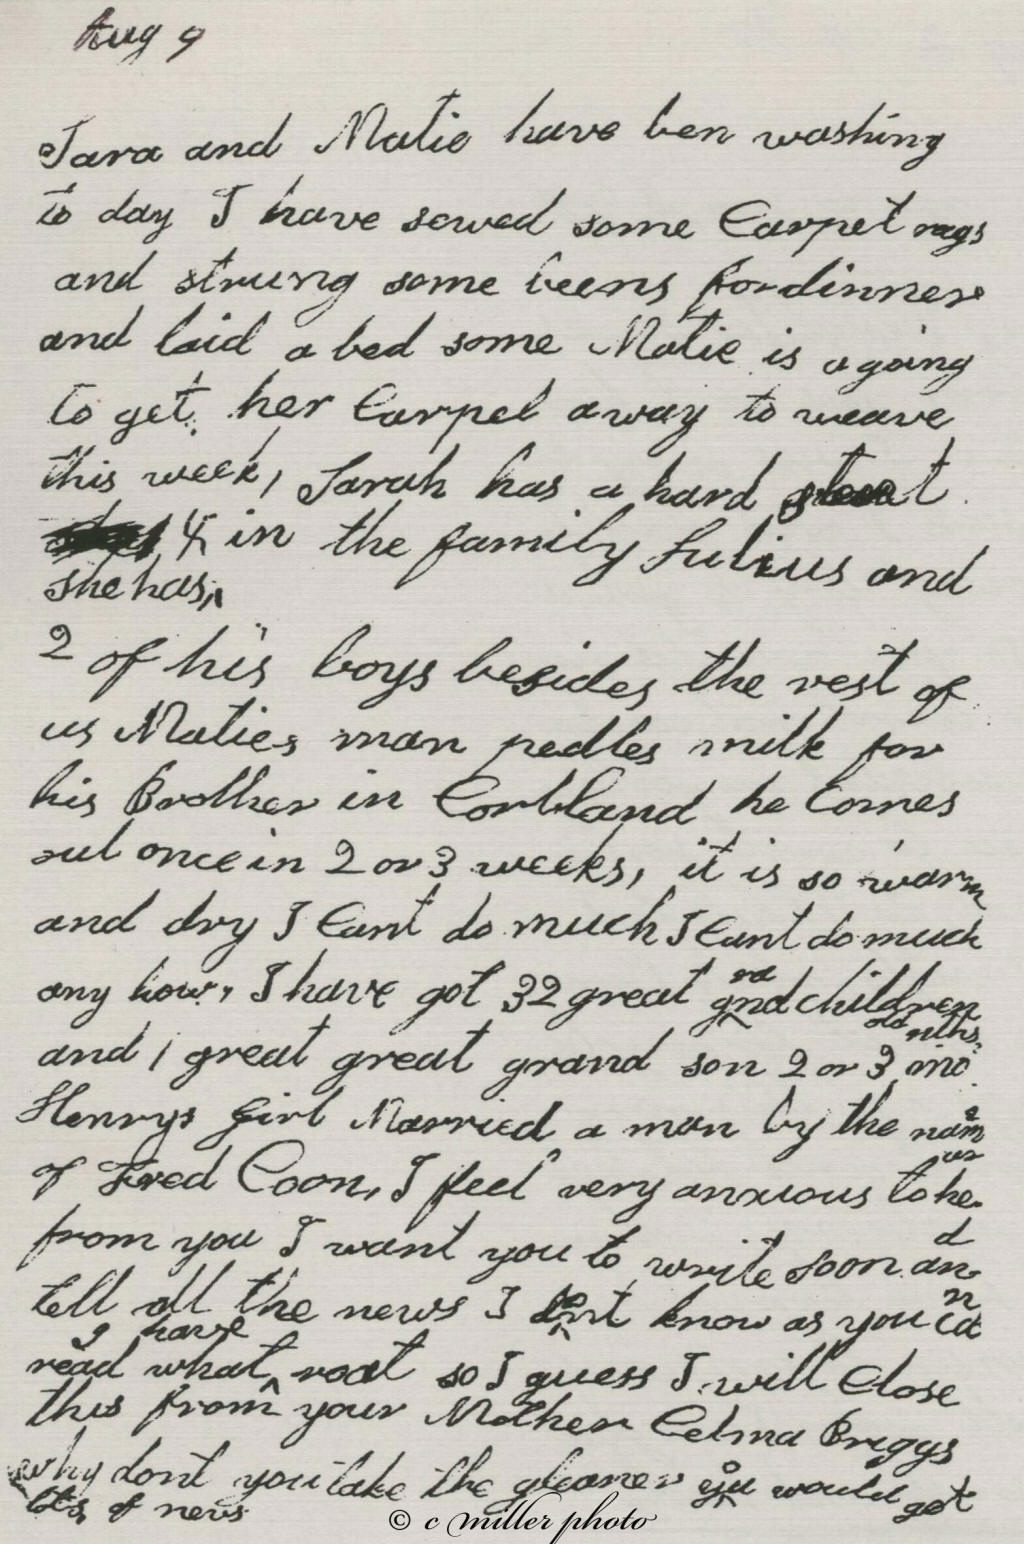 Aug 9
Sara and Matie have ben washing
to day I have sewed some Carpet rags
and strung some beens for dinner
and laid a bed some Matie is a going
to get her Carpet away to weave
this week, Sarah has a hard
4 in the family Julius and
she has,
2 of his boys besides the rest of
us Maties man pedles milk for
his Brother in Cortland he Comes
out once in 2 or 3 weeks, it is so warm
and dry I Cant do much I Cant do much
any how, I have got 32 great grandchildren
and 1 great great grand son 2 or 3 mo nths old
Henrys Girl Married a man by the name
of Fred Coon, I feel very anxious to hear
from you I want you to write soon and
tell all the news I dont know as you can
read what I have roat so I guess I will Close
this from your Mother Celma Briggs
why dont you take the gleaner you would get
lots of news
© c miller photo